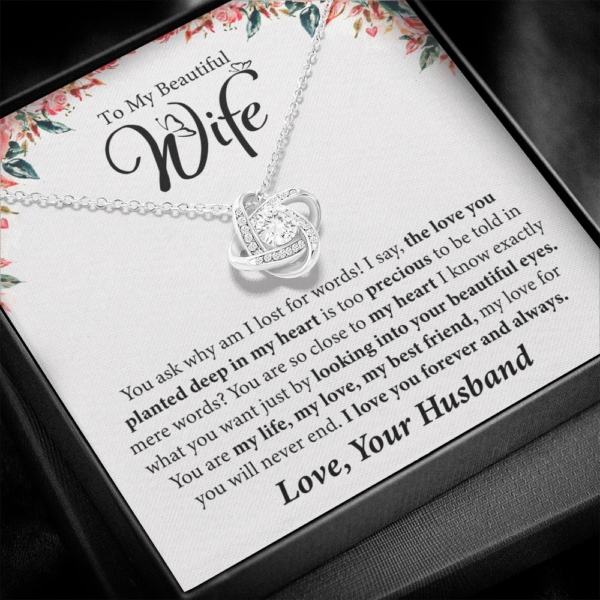 To My Beautiful
Wife
You ask why am I lost for words! I say, the love you
planted deep in my heart is too precious to be told in
mere words? You are so close to my heart I know exactly
what you want just by looking into your beautiful eyes.
You are my life, my love, my best friend, my love for
you will never end. I love you forever and always.
Love, Your Husband